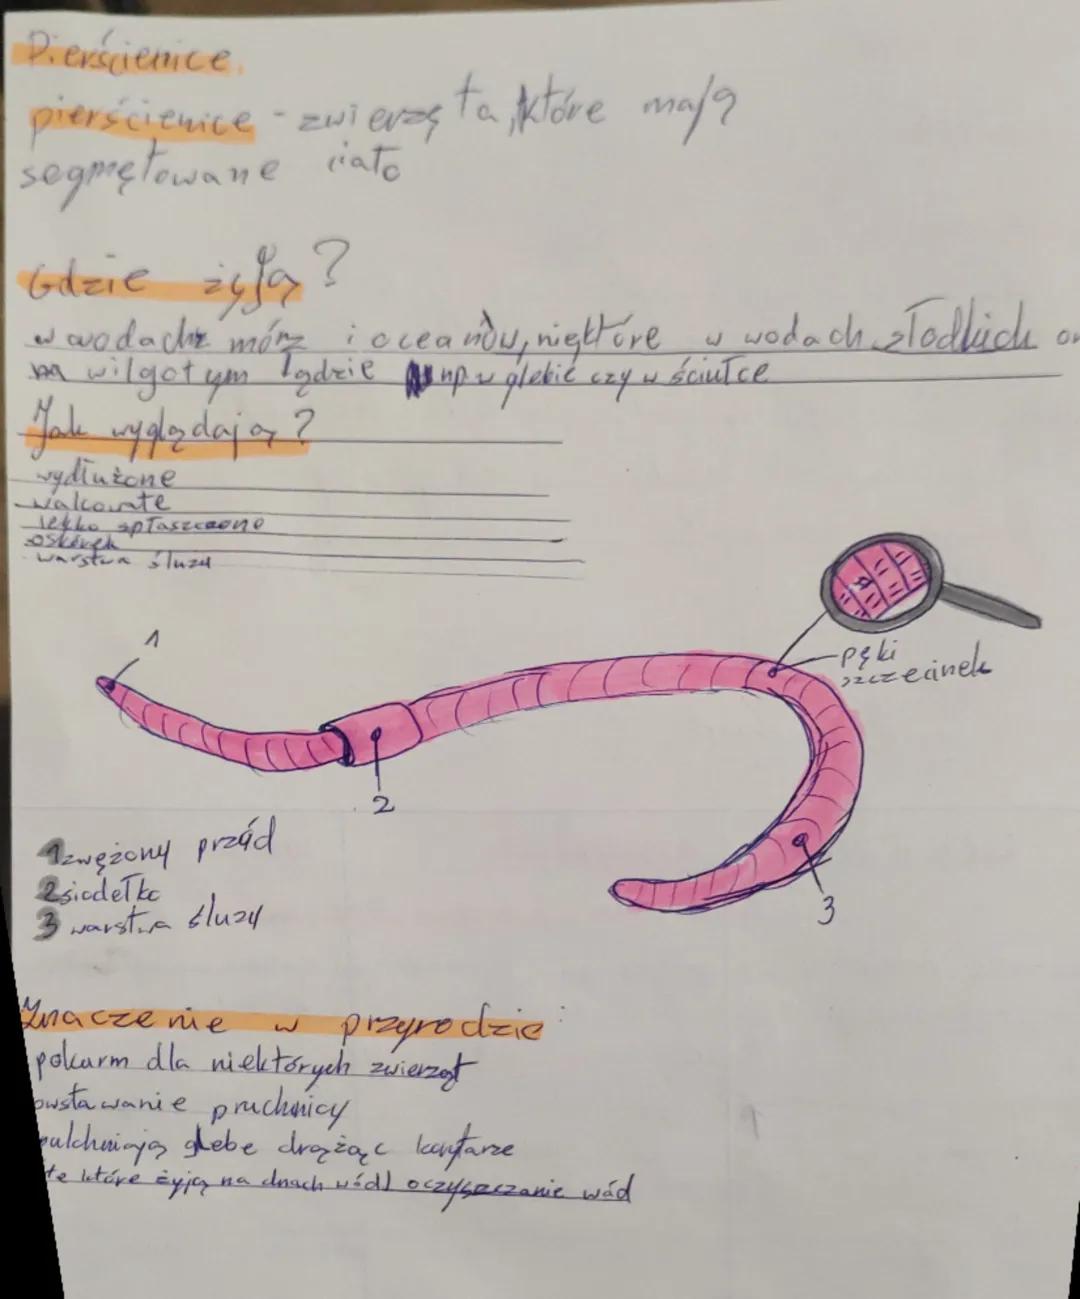 Pierścienice.
pierścienice - zwierzęta, które mają
segmętowane ciało
Gdzie żyją?
w wodach mórz i oceanów, niektóre w wodach słodkich or
na wilgotym lądzie np. w glebie czy w ściułce
Jak wyglądają?
wydłużone
walcowate
lekko spłaszczone
oskórek
warstwa śluzu
1
pęki
szczecinek
2
1 zwężony przód
2 siodełko
3 warstwa śluzu
3
Znaczenie w przyrodzie:
pokarm dla niektórych zwierząt
owstawanie pruchnicy
pulchniają glebe drążąc korytarze
te które żyją na dnach wód oczyszczanie wód